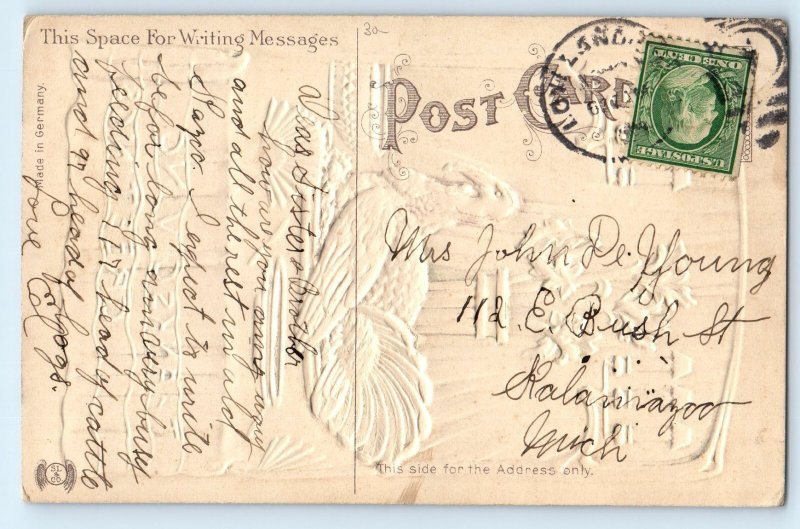 This Space For Writing Messages
30-
POST CARD
Made in Germany.
Dear Sister & Brother
how are you away
and all the rest
I expect to write
before long am very busy
feeding 127 head of cattle
and 97 head of hogs.
love Ed
Mrs John De Young
112 E. Bush St
Kalamazoo
Mich
This side for the Address only.
U.S. POSTAGE
ONE CENT
S.L.
& Co